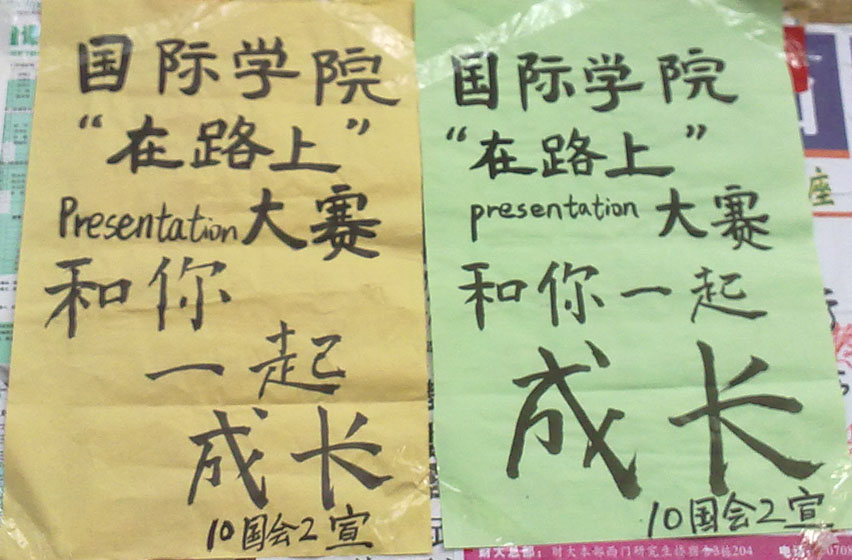 国际学院
“在路上”
Presentation大赛
和你
一起
成长
10国会2宣
国际学院
“在路上”
presentation 大赛
和你一起
成长
10国会2宣
座
财大总部：财大本部西门研究生
电话